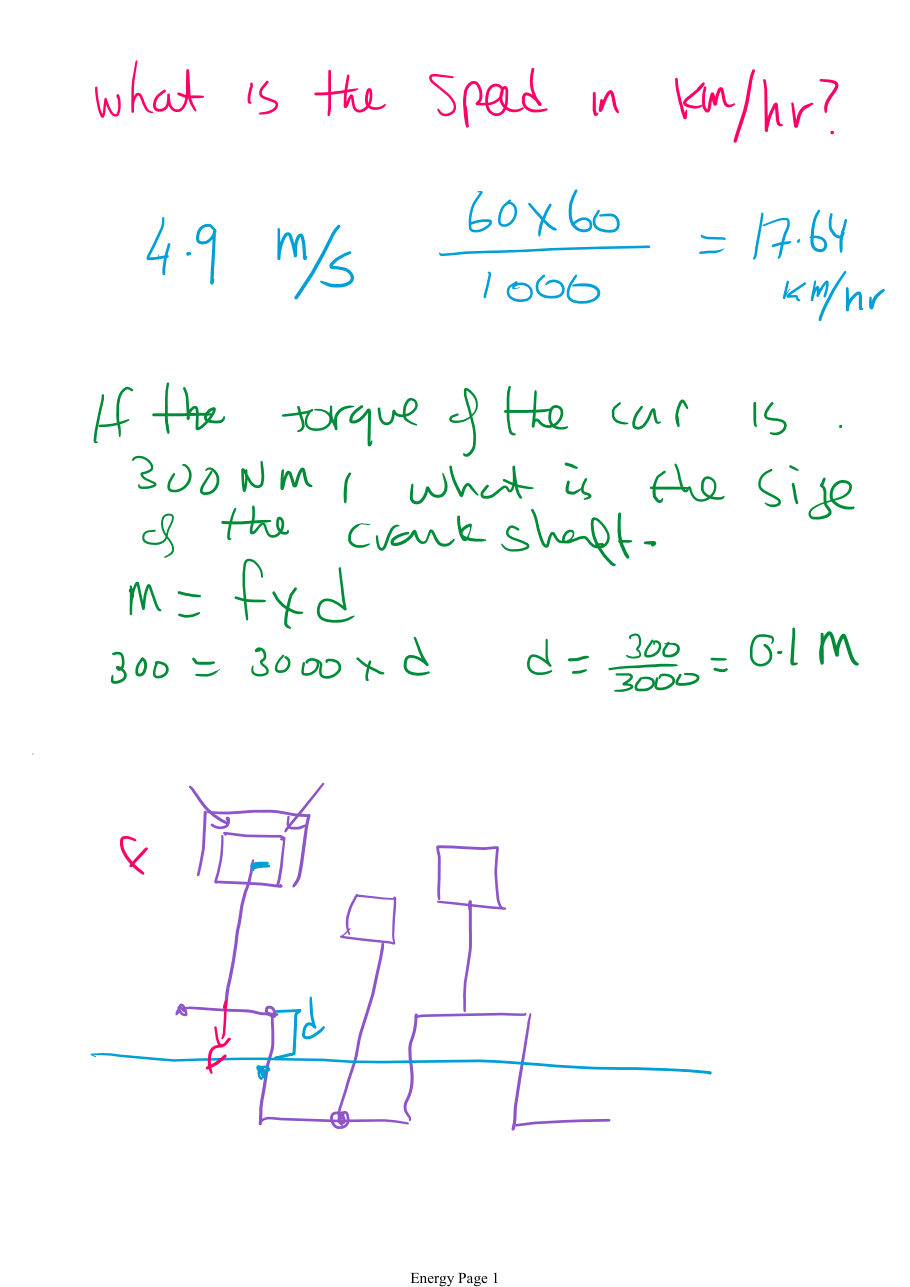 what is the Speed in km/hr?
4.9 m/s 60x60/1000 = 17.64 km/hr
If the torque of the car is .
300 Nm , what is the size
of the crankshaft.
m = f x d
300 = 3000 x d d = 300/3000 = 0.1 m
f
d
f
Energy Page 1